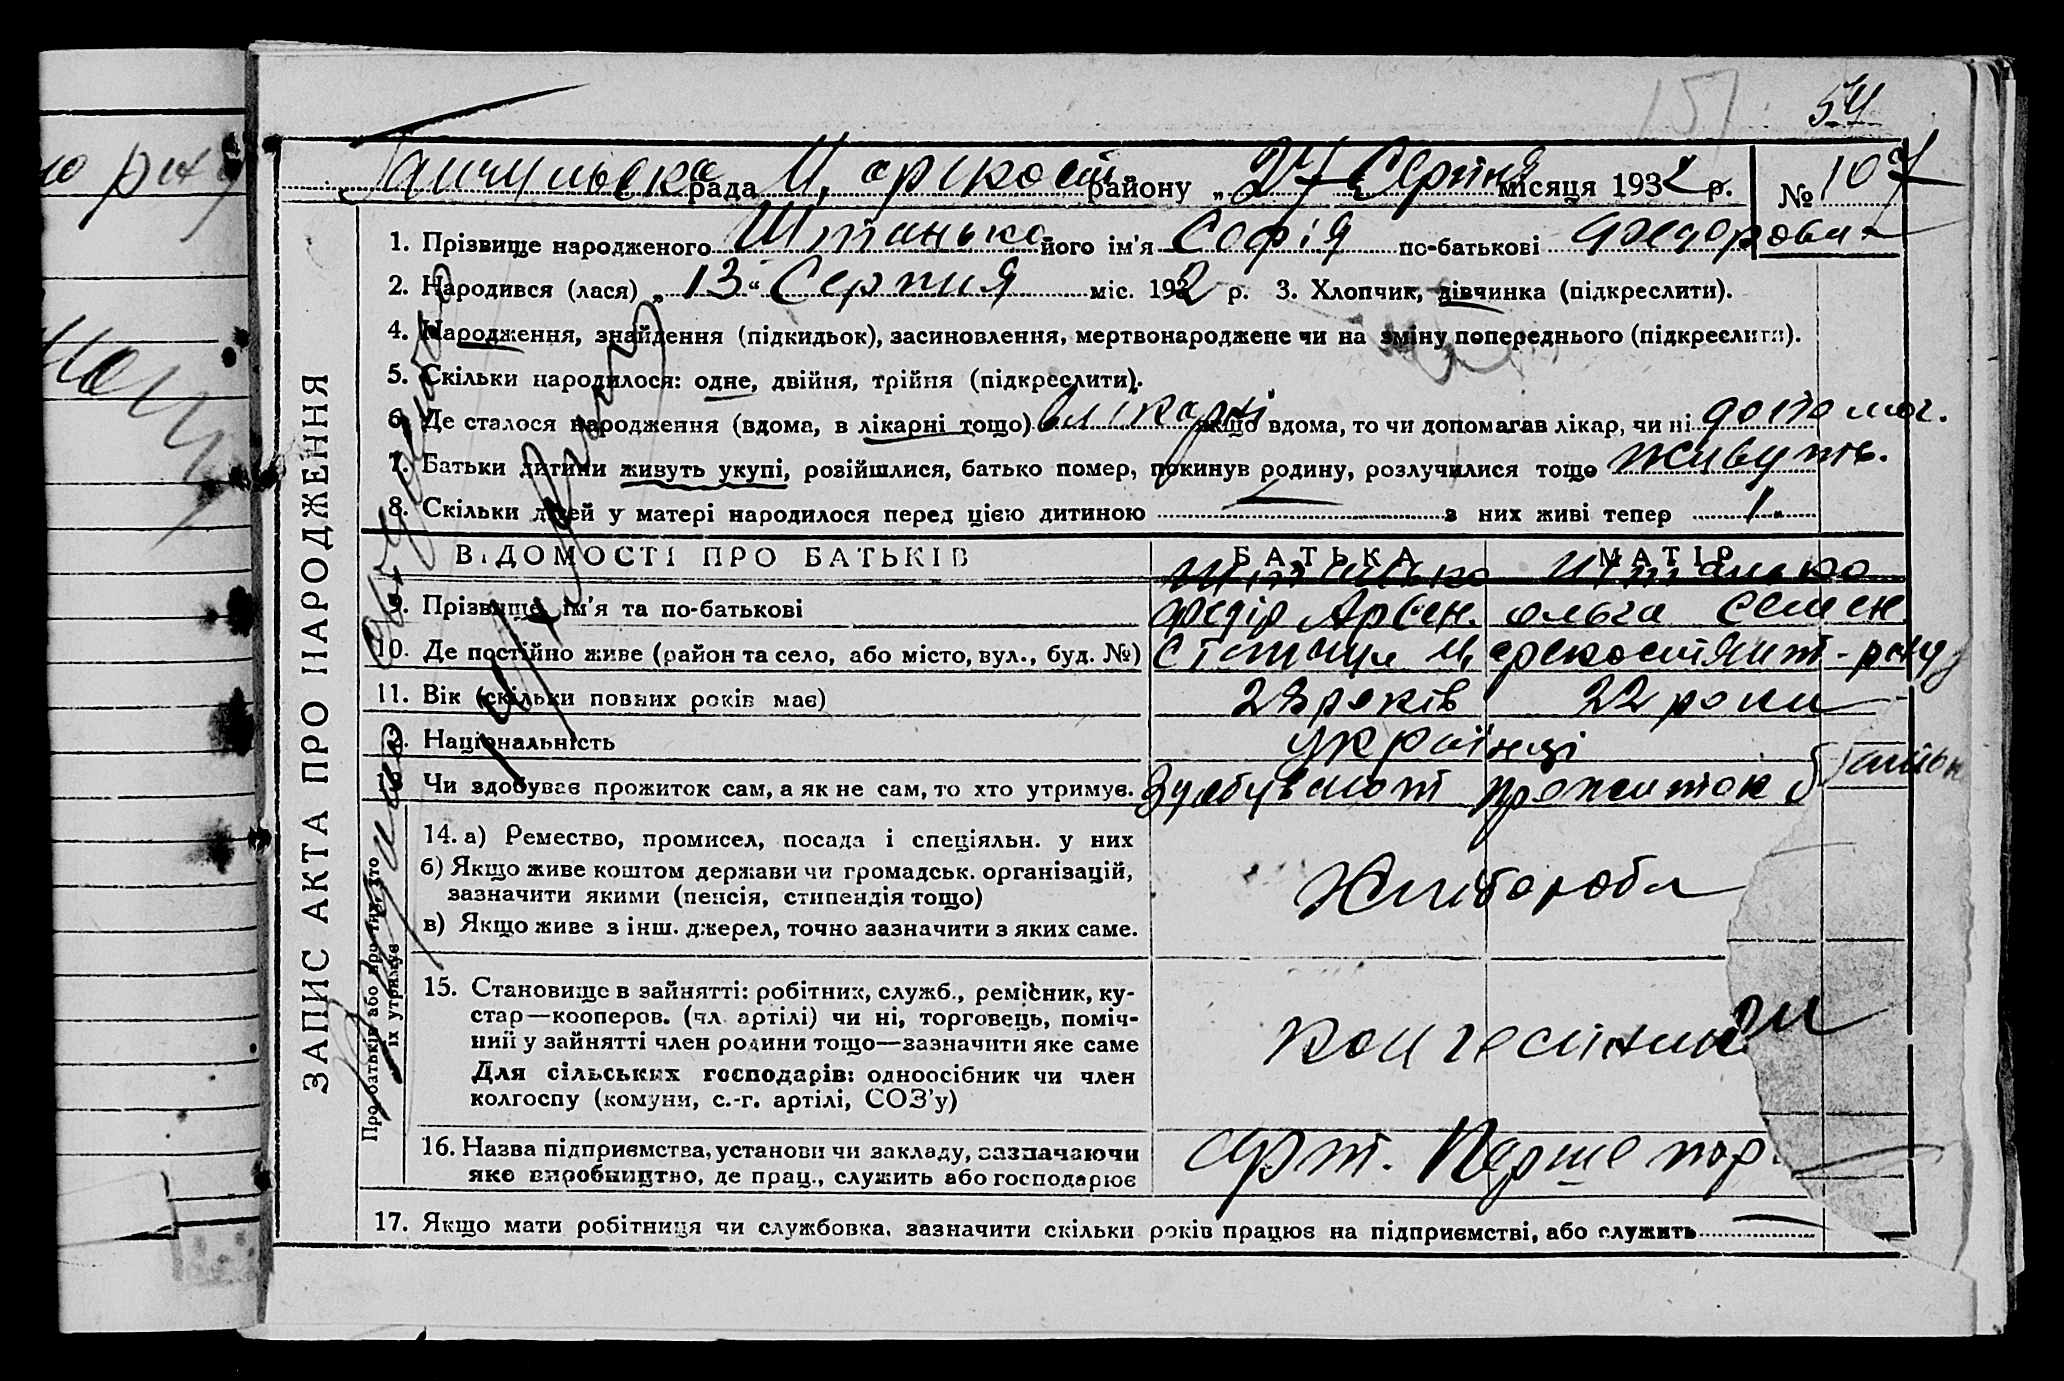 54
рада района „27“ Серпня місяця 1932 р. № 107
1. Прізвище народженого Штанько його ім'я Софія по-батькові Федоровна
2. Народився (лася) „13“ Серпня міс. 1932 р. 3. Хлопчик, дівчинка (підкреслити).
4. Народження, знайдення (підкидьок), засиновлення, мертвонароджене чи на зміну попереднього (підкреслити).
5. Скільки народилося: одне, двійня, трійня (підкреслити).
6. Де сталося народження (вдома, в лікарні тощо) в лікарні якщо вдома, то чи допомагав лікар, чи ні
7. Батьки дитини живуть укупі, розійшлися, батько помер, покинув родину, розлучилися тощо живуть.
8. Скільки дітей у матері народилося перед цією дитиною з них живі тепер 1
ВІДОМОСТІ ПРО БАТЬКІВ БАТЬКА МАТІР
Штанько Штанько
9. Прізвище, ім'я та по-батькові Федір Арсен. Ольга Семен.
10. Де постійно живе (район та село, або місто, вул., буд. №)
11. Вік (скільки повних років має) 28 років 22 роки
12. Національність українці
13. Чи здобуває прожиток сам, а як не сам, то хто утримує. Здобувают прожиток
14. а) Ремество, промисел, посада і спеціяльн. у них
б) Якщо живе коштом держави чи громадськ. організацій,
зазначити якими (пенсія, стипендія тощо)
Хліборобы
в) Якщо живе з інш. джерел, точно зазначити з яких саме.
15. Становище в зайнятті: робітник, служб., ремісник, ку-
стар—кооперов. (чл. артілі) чи ні, торговець, поміч-
ний у зайнятті член родини тощо—зазначити яке саме
Для сільських господарів: одноосібник чи член
колгоспу (комуни, с.-г. артілі, СОЗ'у)
16. Назва підприємства, установи чи закладу, зазначаючи
яке виробництво, де прац., служить або господарює
арт. Перше
17. Якщо мати робітниця чи службовка, зазначити скільки років працює на підприємстві, або служить
ЗАПИС АКТА ПРО НАРОДЖЕННЯ
Про батьків або про тих, хто
їх утримує